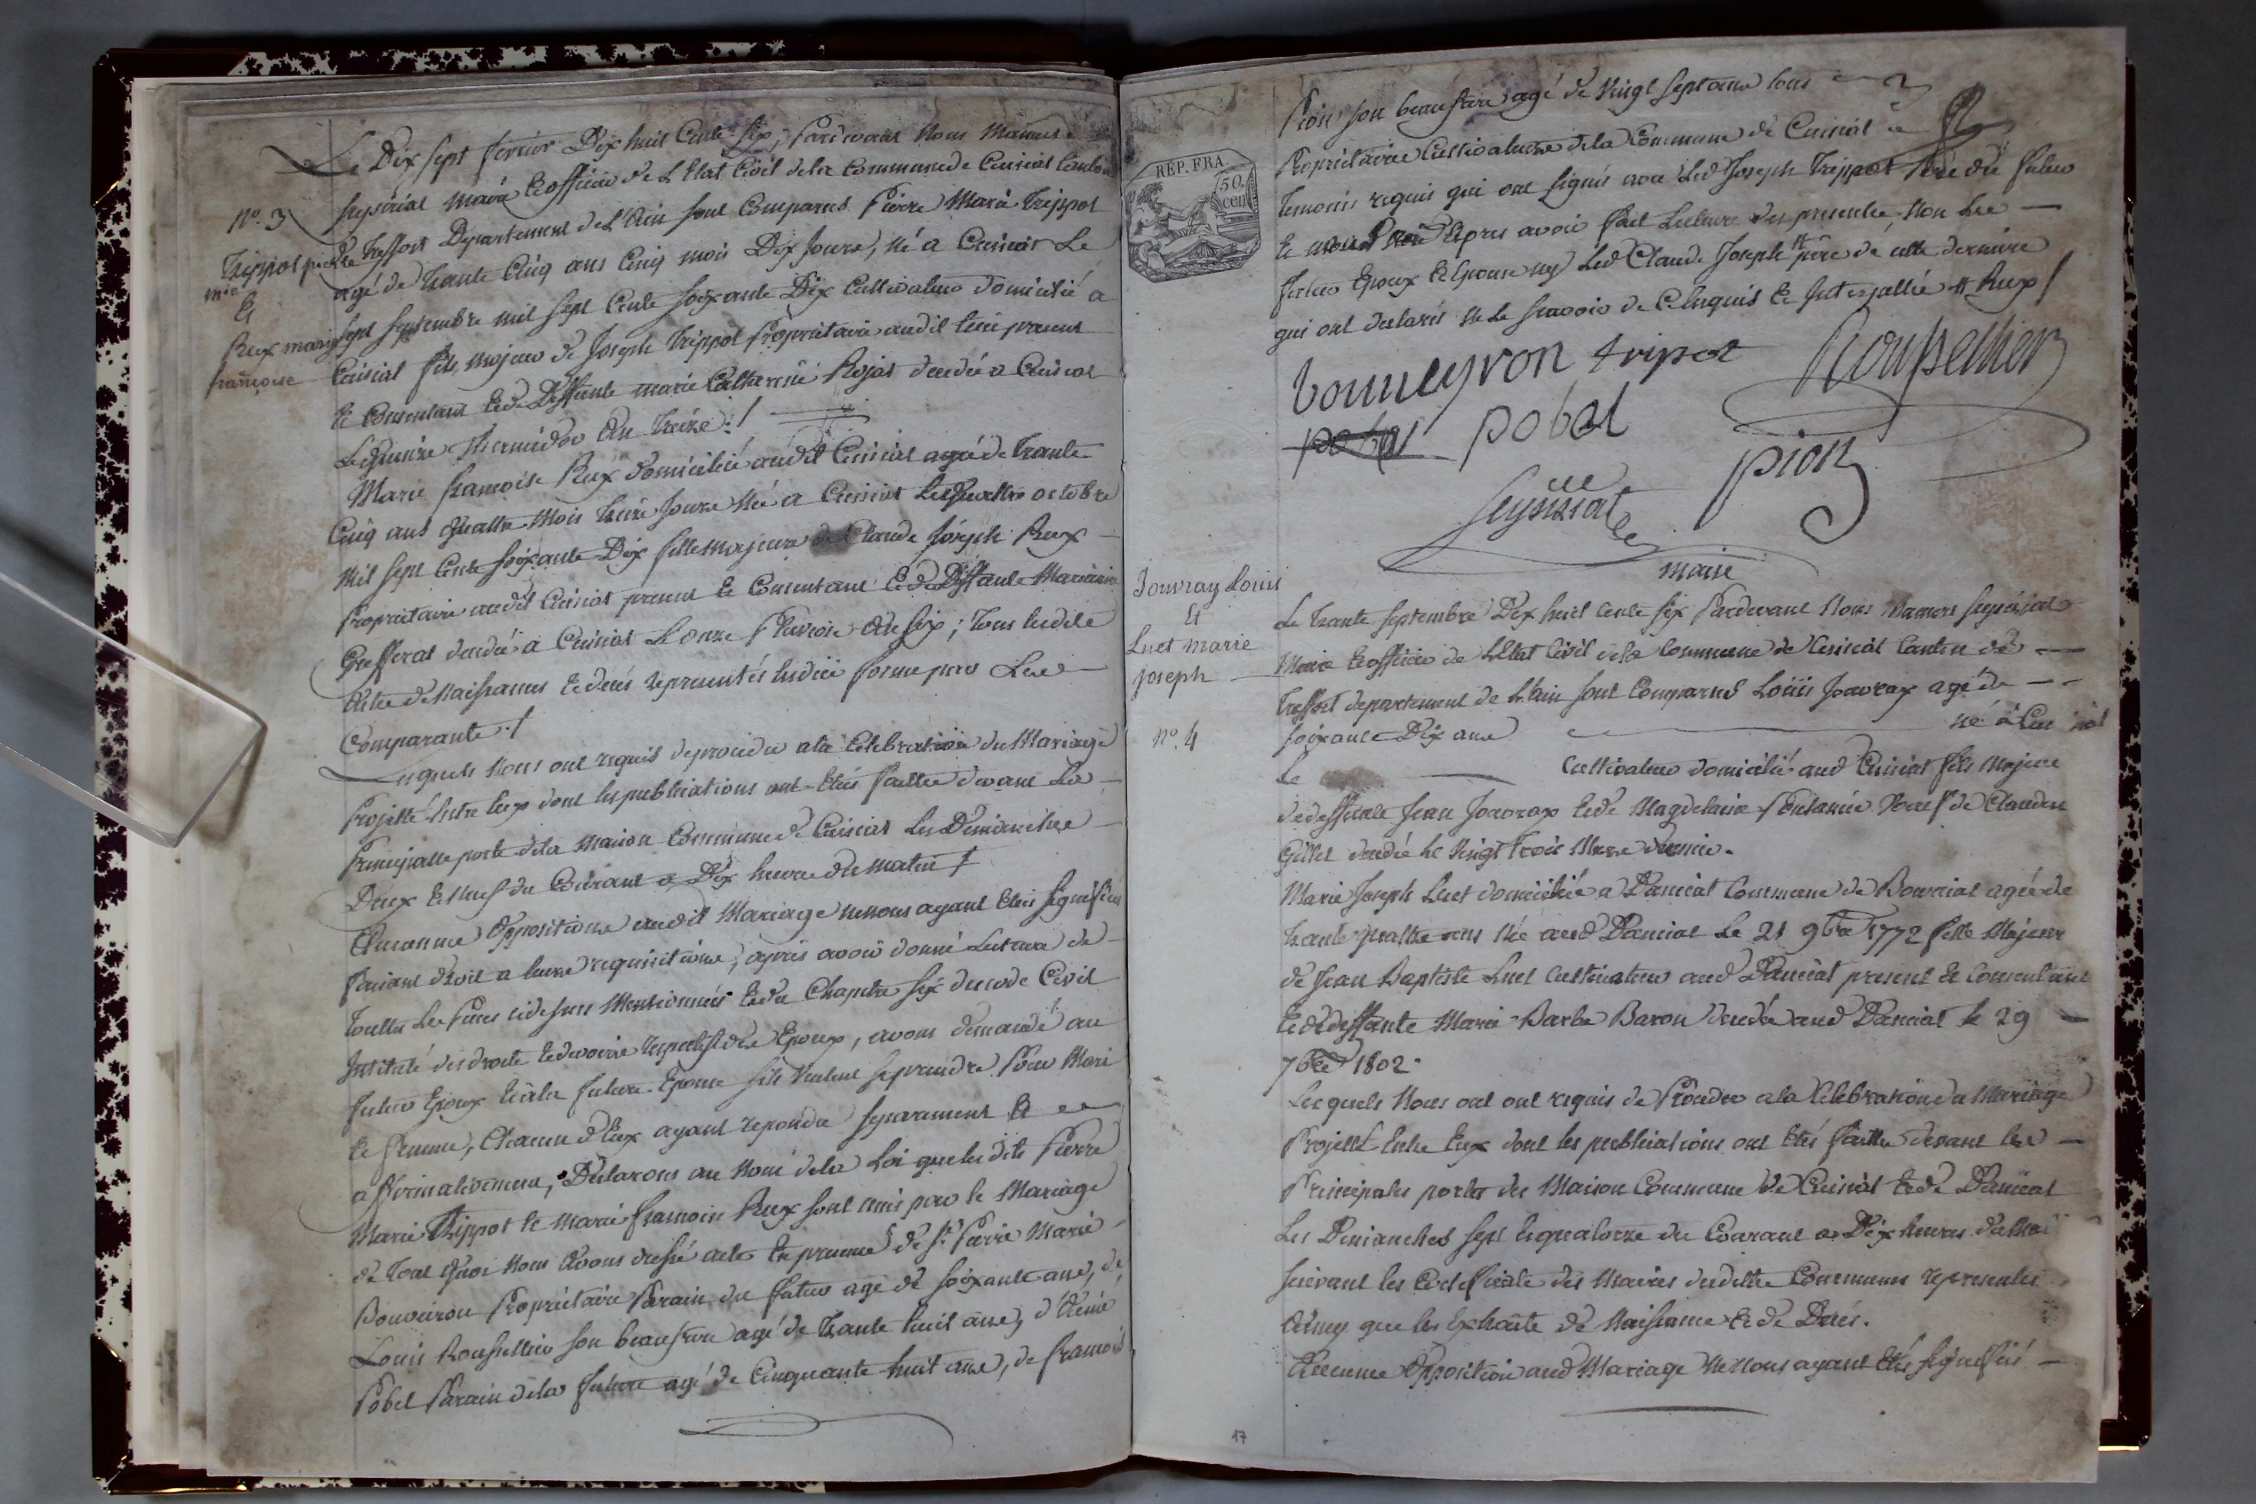 Le Dix sept fevrier Dix huit Cents Six, Pardevant Nous Mamert
Seyssiat Maire & officier de L'Etat Civil dela Commune de Cuisiat Canton
de Treffort Departement de L'Ain sont Comparus Pierre Marie Trippot
agé de trante Cinq ans Cinq mois Dix Jours, né a Cuisiat Le
Sept Septembre mil sept Cents soixante Dix Cultivateur domicilié a
Cuisiat fils majeur de Joseph Trippot Propriétaire audit lieu present
& Consentant & de Deffunte marie Catherine Rojat décédée a Cuisiat
Le quinze Thermidor An Treize ./
No. 3
Trippot pierre
mie
Et
Reux marie
françoise
Marie françoise Reux domiciliée audit Cuisiat agée de trante
Cinq ans quattre Mois treize Jours Née a Cuisiat Le quattre octobre
Mil sept Cents soixante Dix fille majeure de Claude Joseph Reux
Propriétaire audit Cuisiat present & Consentant & de Deffunte Marianne
Gresserat décédée a Cuisiat Le onze Pluviose An Six ; tous lesdits
Actes de Naissances & décés representés en düe forme par Les
Comparants ./
Lesquels Nous ont requis de procéder a la Célébration du Mariage
Projetté Entre Eux dont les publications ont Etés faittes devant La
Principalle porte dela Maison Commune de Cuisiat Les Dimanches
Deux & Neuf du Courant a Dix heures du matin /
Aucunne opposition audit Mariage ne nous ayant Etés Signifiée
faisant droit a leurs requisitions, apres avoir donné Lecture de
Touttes Les Pieces cidessus Mentionnées & du Chapitre Six du code Civil
Intitulé des droits & devoirs respectifs des Epoux, avons demandé au
futur Epoux & a la future Epouse sils Veulent se prendre Pour Mari
& femme, Chacun d'Eux ayant repondu separement &
affirmativement, Declarons au Nom dela Loi que lesdits Pierre
Marie Trippot & Marie françoise Reux sont unis par le Mariage
de tout quoi Nous avons dressé acte En presence de Sr. Pierre Marie
Bonveiron Propriétaire Parain du futur agé de soixante ans, de
Louis Roussellier son beaufrere agé de trante huit ans, d'Aimé
Pobel Parain dela future agé de Cinquante huit ans, de françois
REP. FRA
50
cen
Pion son beaufrere agé de Vingt sept ans tous
Propriétaires Cultivateurs dela Commune de Cuisiat
temoins requis qui ont signés avec Led. Joseph Trippot Pere du futur
& Nous apres avoir fait Lecture des presentes, Non Les
futurs Epoux & Epouse ny Led. Claude Joseph pere de cette derniere
qui ont declarés Ne Le sçavoir de ce Enquis & Interpellés # Reux /
bonneyron tripot Roupsellier
pobel pobel
Seyssiat pion
maire
Jouvray Louis
Et
Luet marie
joseph
No. 4
Le trante Septembre Dix huit Cents Six Pardevant Nous Mamert Seyssiat
Maire & officier de L'Etat Civil dela Commune de Cuisiat Canton de
Treffort departement de L'Ain sont Comparus Loüis Jouvray agé de
soixante Dix ans né à Cuisiat
Le Cultivateur domicilié aud Cuisiat fils Majeur
de deffunts Jean Jouvray & de Magdelaine Veuf de Claudine
Gillet décédée le Vingt trois Mars dernier.
Marie Joseph Luet domiciliée a Dancia Commune de agée de
trante quattre ans Née aud Dancia Le 21 9bre 1772 fille Majeure
de Jean Baptiste Luet Cultivateur aud Dancia present & Consentant
& de deffunte Marie Barbe Baron décédée aud Dancia le 29
7bre 1802.
Lesquels Nous ont ont requis de Procéder a la Célébration du Mariage
Projetté Entre Eux dont les publications ont Etés faittes devant Les
Principales portes des Maison Commune de Cuisiat & de Dancia
Les Dimanches sept & quatorze du Courant a Dix heures du Mat
Suivant les Certificats des Maires desdittes Communes representés
Ainsy que les Extraits de Naissance & de Decés.
Aucunne Opposition aud Mariage Ne nous ayant Etés Signifiée
17